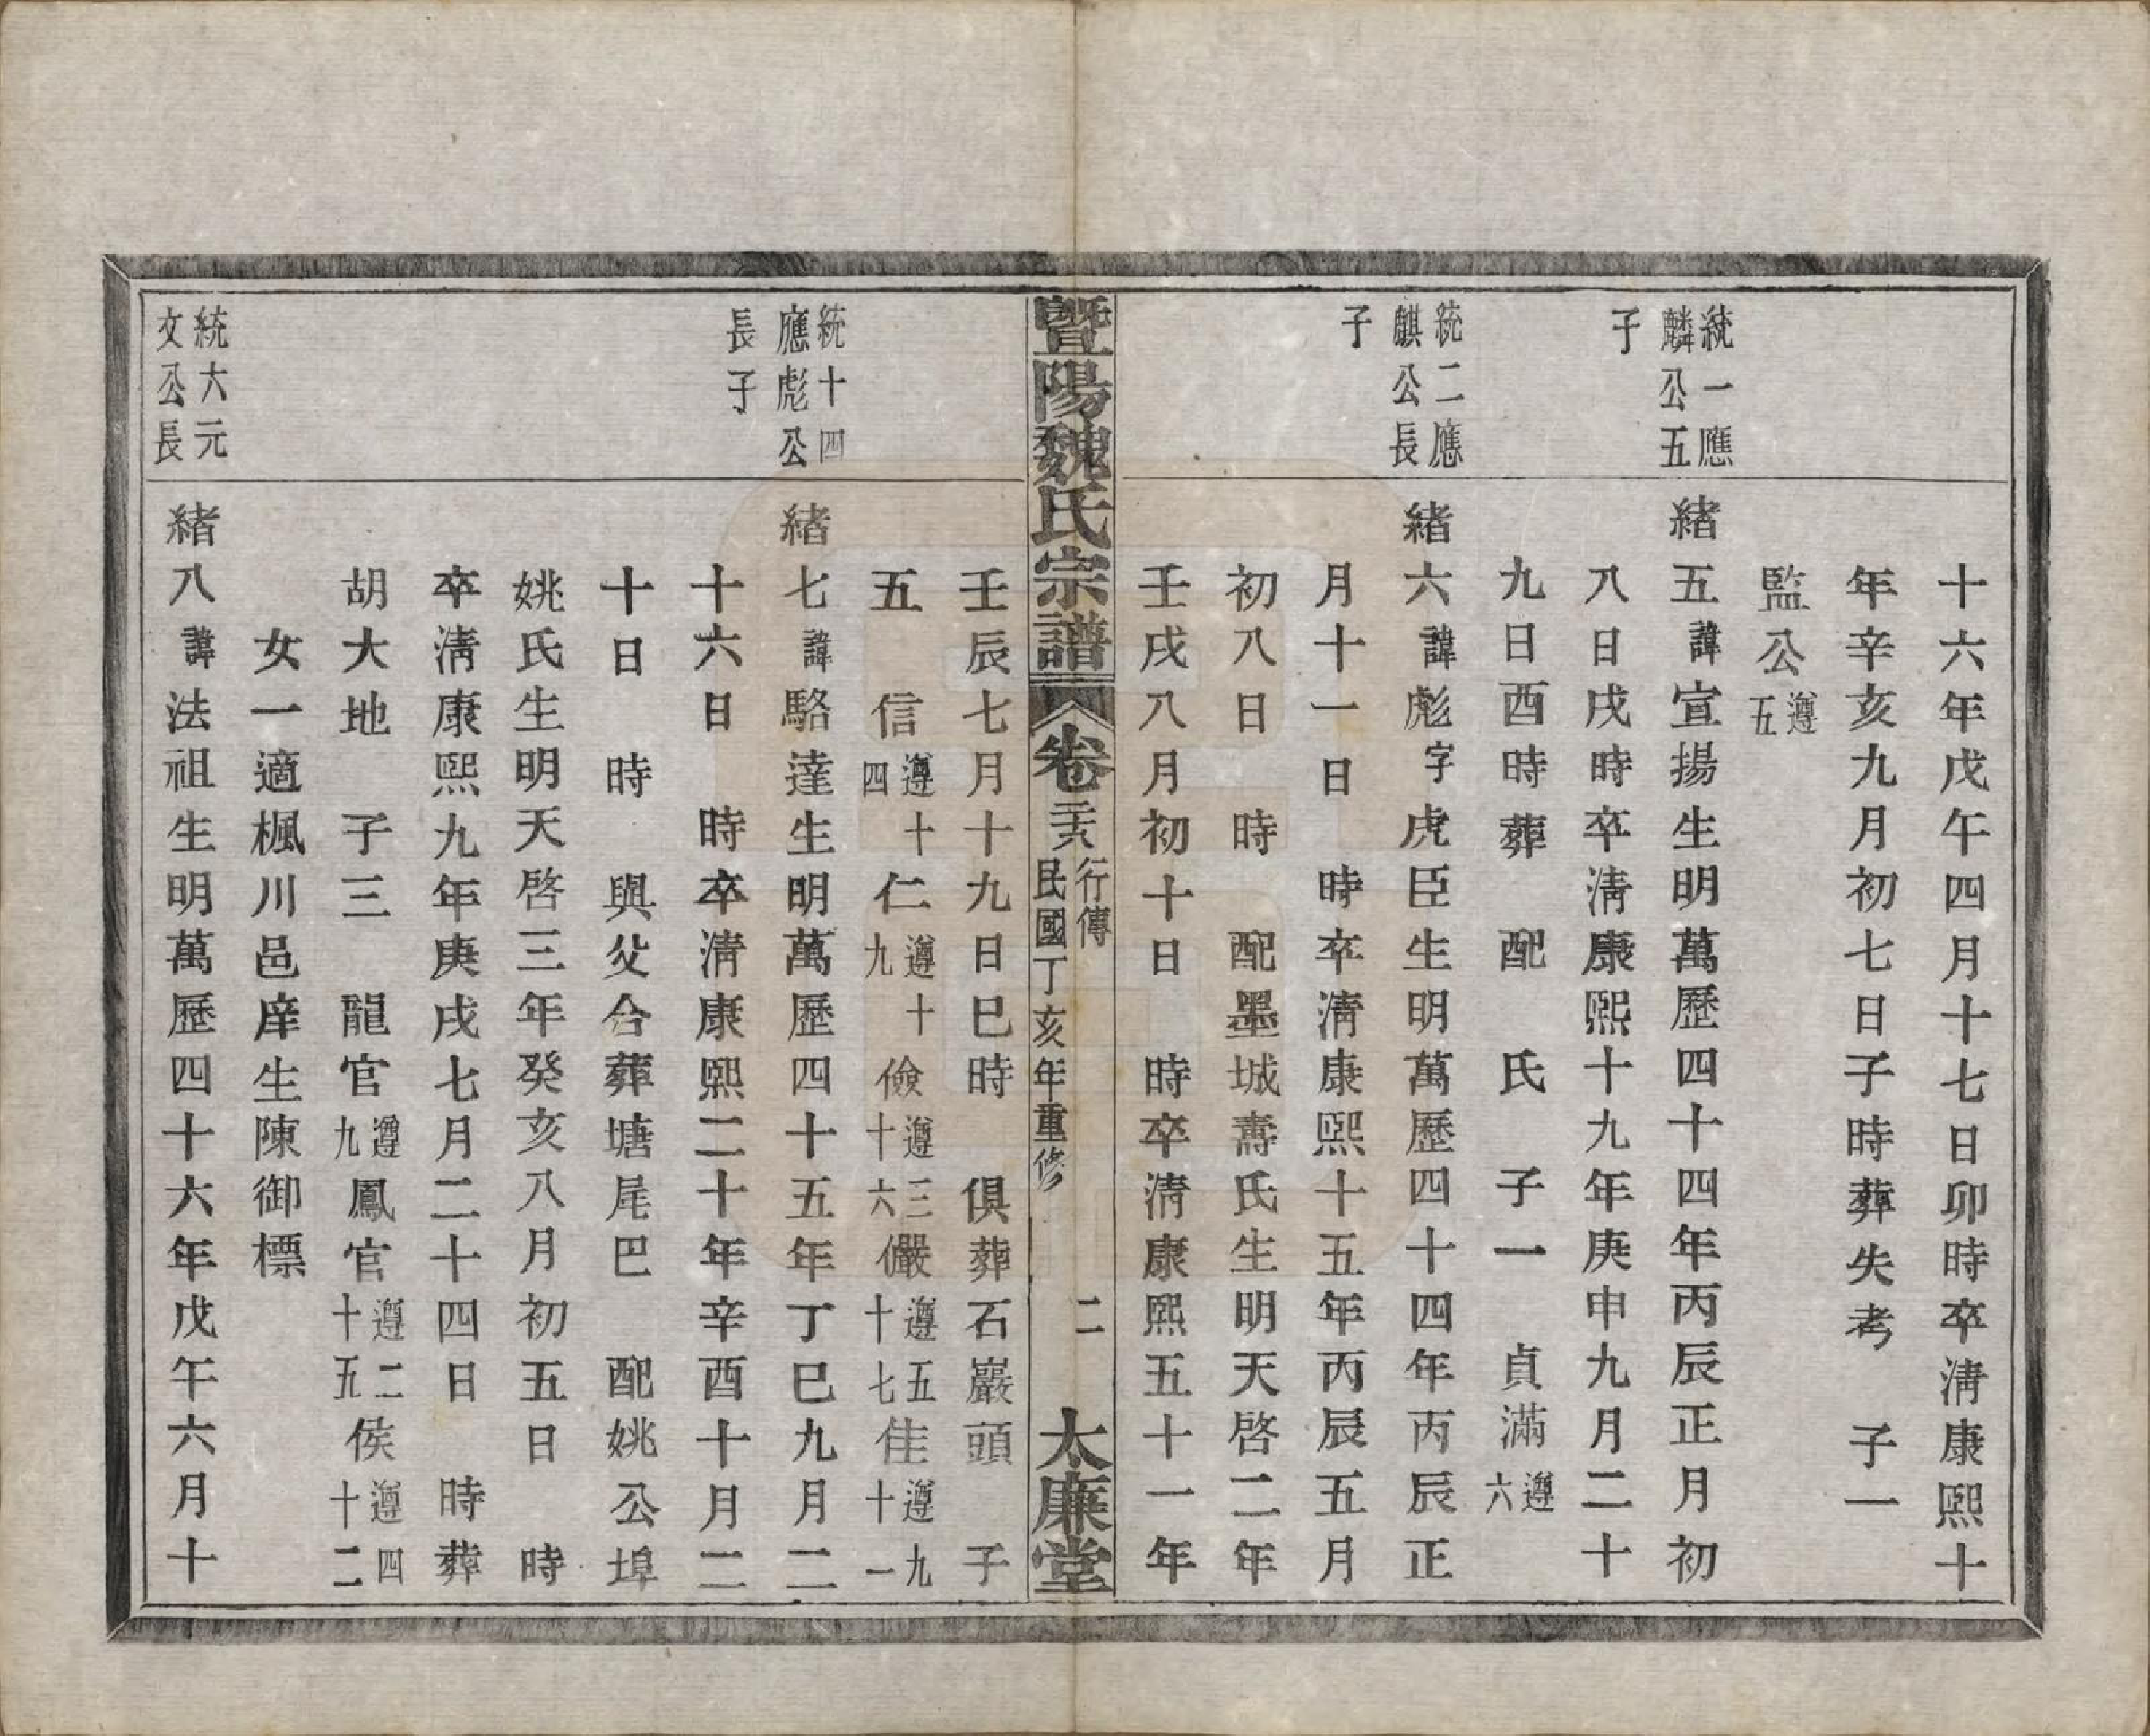 十六年戊午四月十七日卯時卒淸康熙十
年辛亥九月初七日子時葬失考　子一
監公遵五
統一應
麟公五
子
緖五諱宣揚生明萬歷四十四年丙辰正月初
八日戌時卒淸康熙十九年庚申九月二十
九日酉時葬　配　氏　子一　貞滿遵六
統二應
麒公長
子
緖六諱彪字虎臣生明萬歷四十四年丙辰正
月十一日　時卒淸康熙十五年丙辰五月
初八日　時　配墨城壽氏生明天啓二年
壬戌八月初十日　時卒淸康熙五十一年
暨陽魏氏宗譜　卷二十六　行傳　民國丁亥年重修　二　太廉堂
壬辰七月十九日巳時　俱葬石巖頭　子
五　信遵十四　仁遵十九　儉遵三十六　儼遵五十七　佳遵九十一
統十四
應彪公
長子
緖七諱駱達生明萬歷四十五年丁巳九月二
十六日　時卒淸康熙二十年辛酉十月二
十日　時　與父合葬塘尾巴　配姚公埠
姚氏生明天啓三年癸亥八月初五日　時
卒淸康熙九年庚戌七月二十四日　時葬
胡大地　子三　龍官遵九　鳳官遵二十五　侯遵四十二
女一適楓川邑庠生陳御標
統大元
文公長
緖八諱法祖生明萬歷四十六年戊午六月十